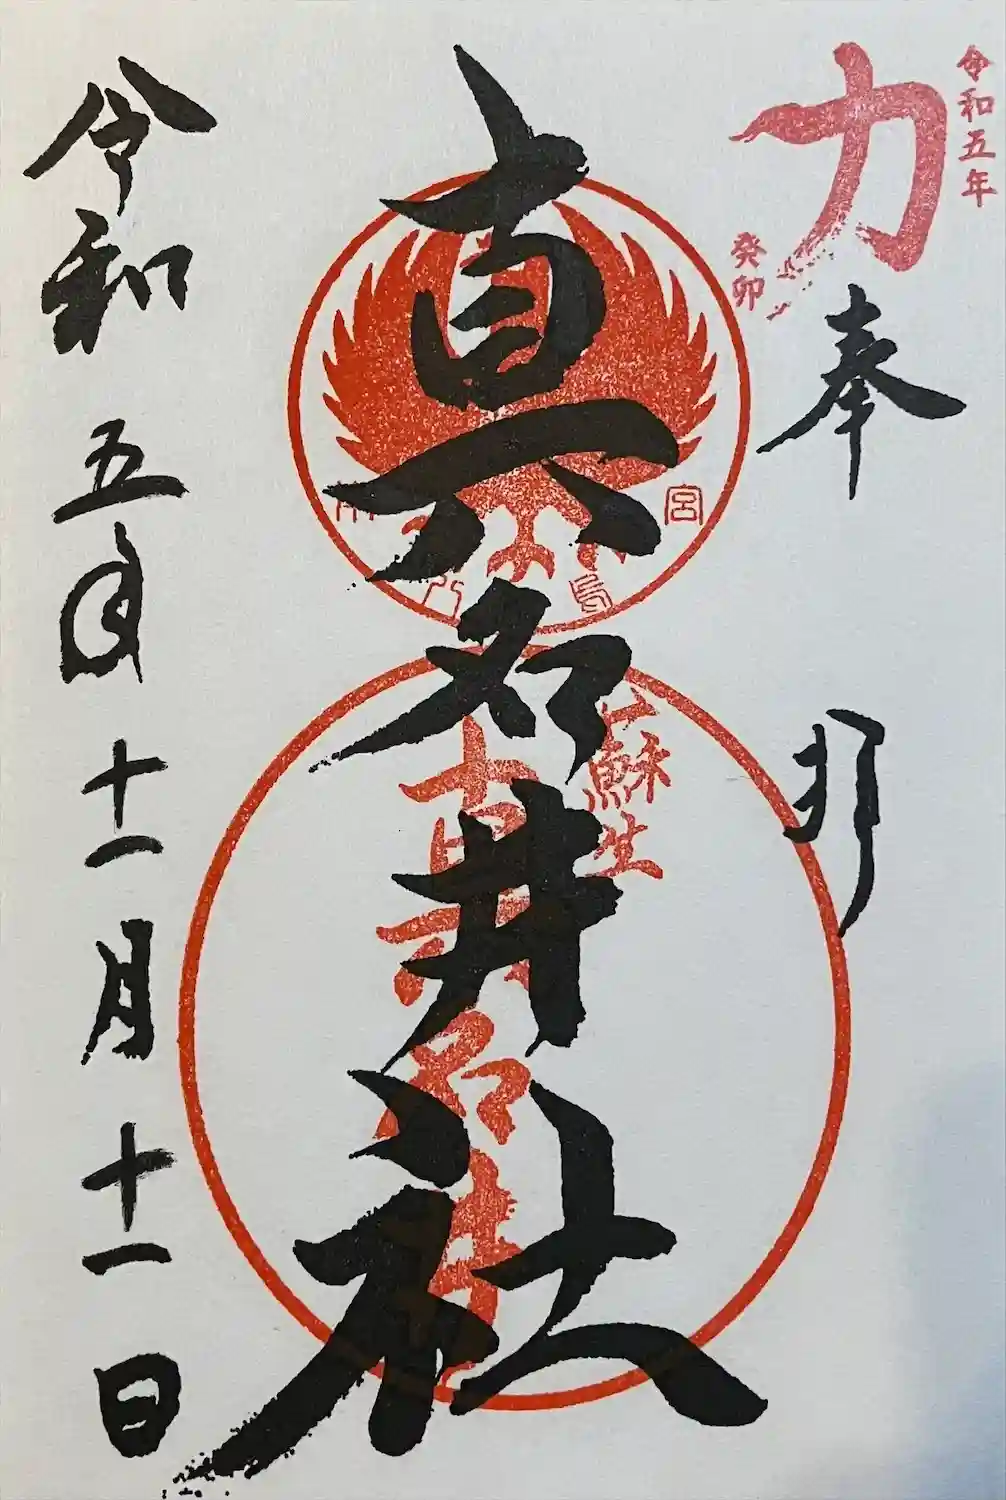 令和五年
力
癸卯
奉拝
真名井社
宮
蘇生
真名井
令和五年十一月十一日